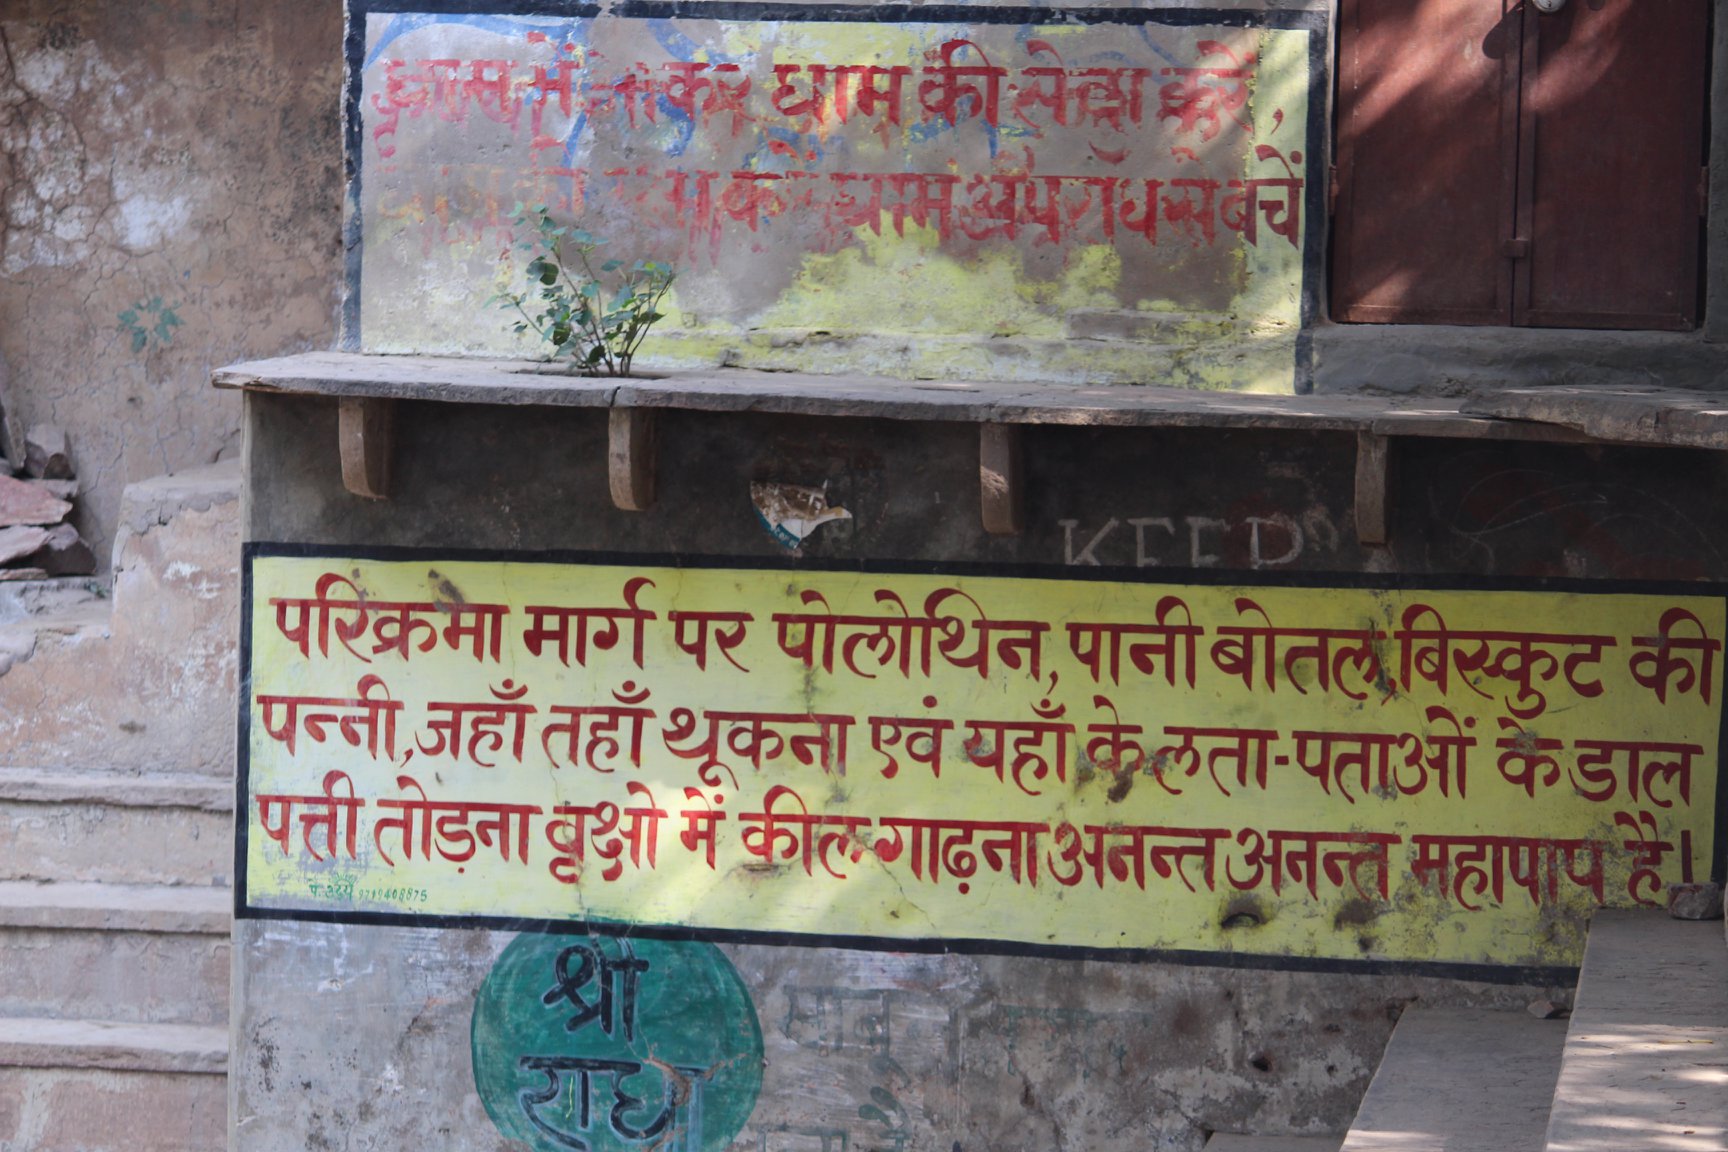 धाम में आकर धाम की सेवा करें,
धाम अपराध से बचें
KEEP
परिक्रमा मार्ग पर पोलोथिन, पानी बोतल, बिस्कुट की
पन्नी, जहाँ तहाँ थूकना एवं यहाँ के लता-पताओं के डाल
पत्ती तोड़ना वृक्षो में कील गाढ़ना अनन्त अनन्त महापाप है।
9719408875
श्री
राधा